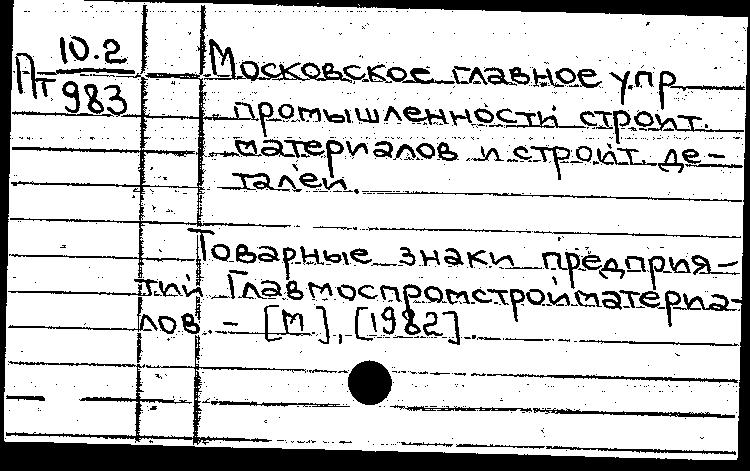 Пт 10.2/983
Московское главное упр
промышленности строит.
материалов и строит. де-
талей.
Товарные знаки предприя-
тий Главмоспромстройматериа-
лов. - [М], [1982].